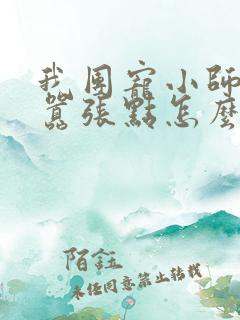 我團寵小師
囂張點怎麼
陌鈺
未經同意禁止轉載